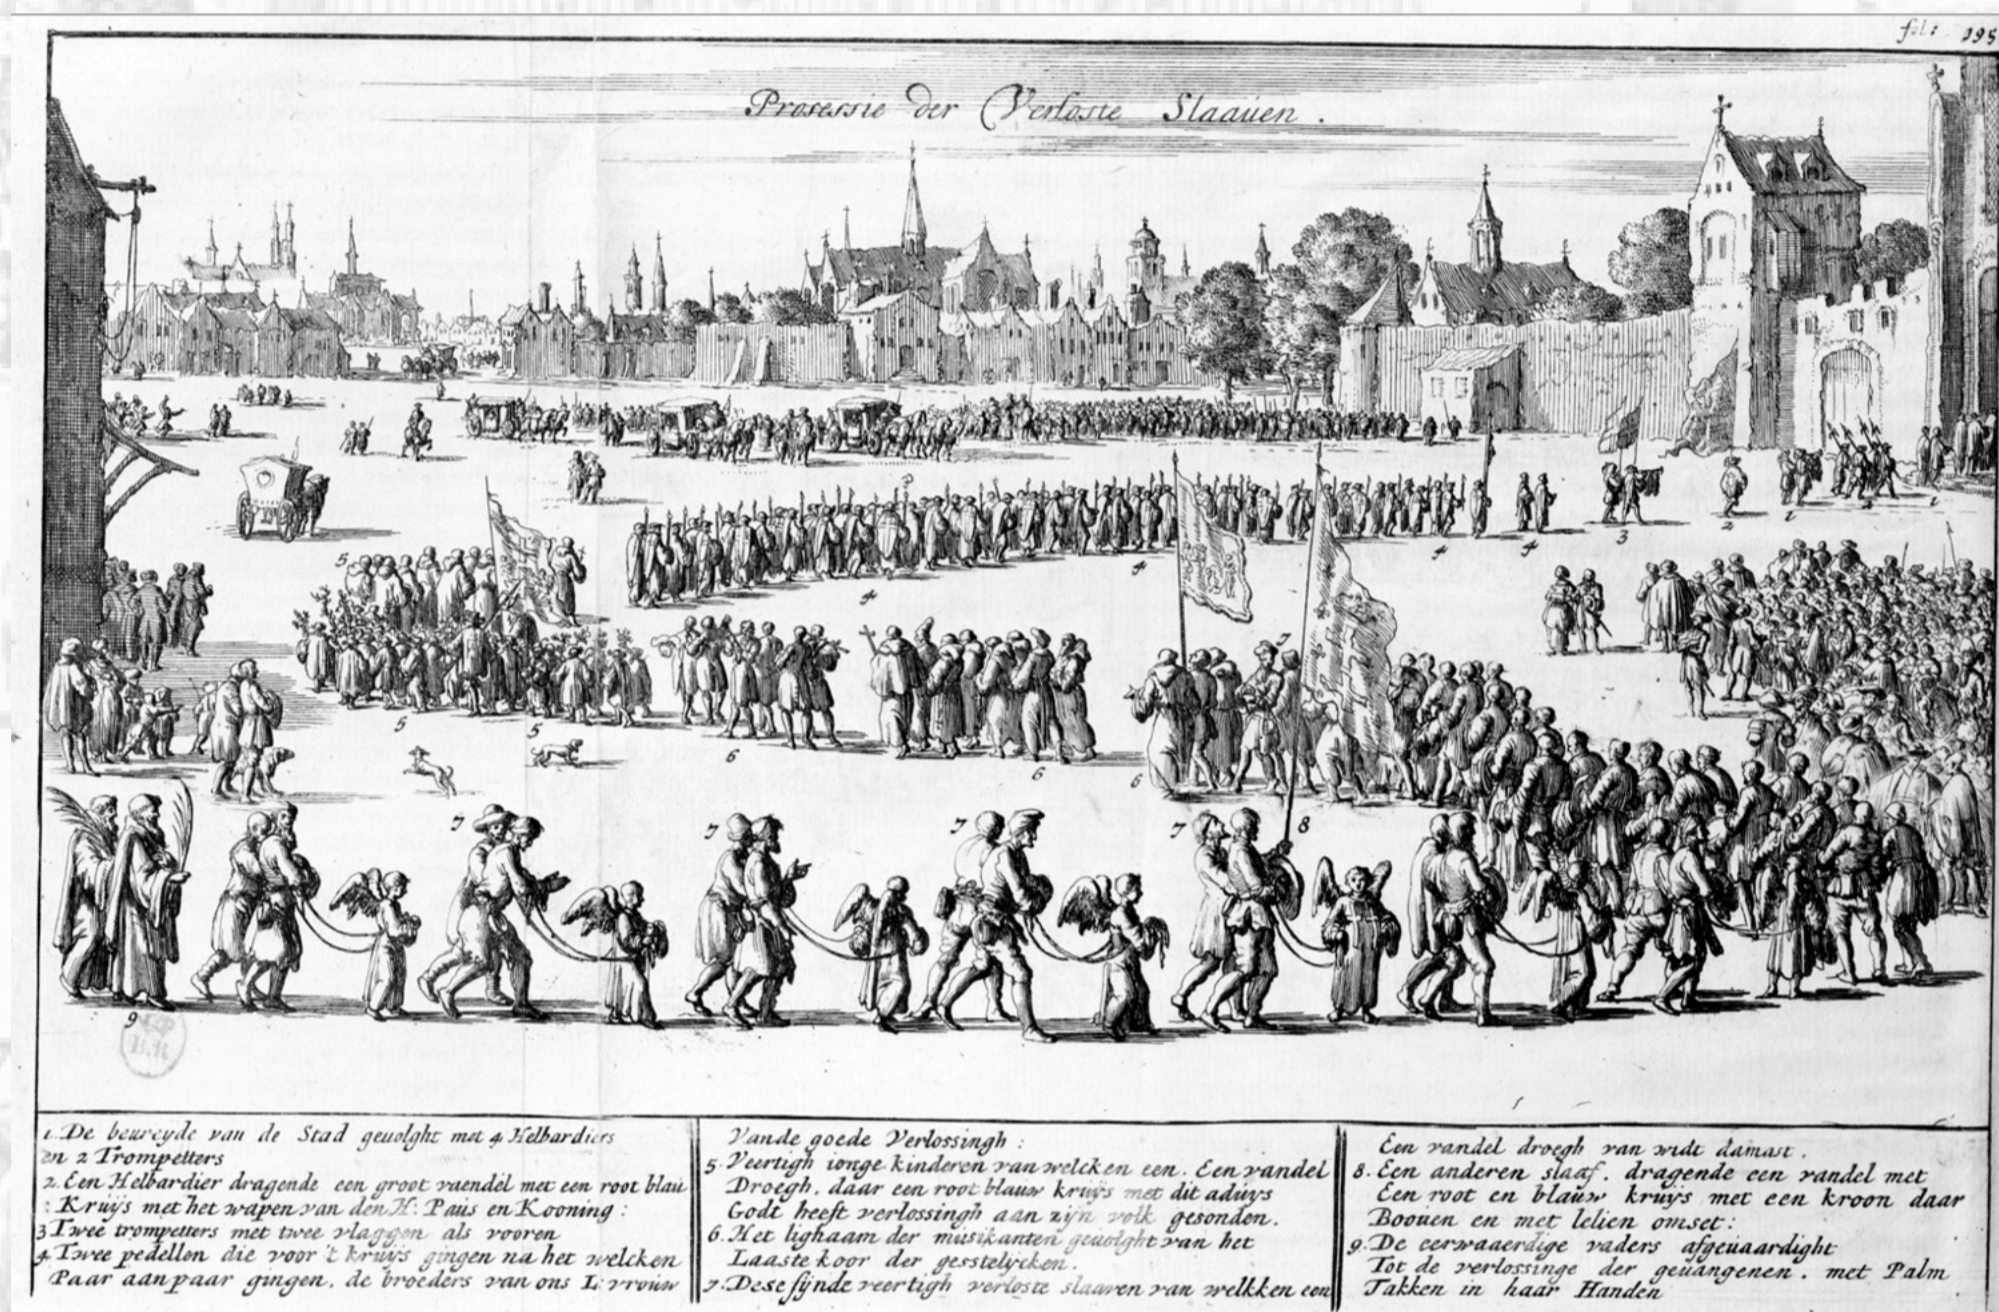 fol: 195
Prosessie der Verloste Slaauen.
1. De beureyde van de Stad geuolght met 4 Helbardiers
en 2 Trompetters
2. Een Helbardier dragende een groot vaendel met een root blau
Kruys met het wapen van den H. Paus en Kooning:
3 Twee trompetters met twee vlaggen als vooren
4. Twee pedellen die voor 't kruys gingen na het welcken
Paar aan paar gingen, de broeders van ons L. vrouw
Vande goede Verlossingh:
5. Veertigh ionge kinderen van welcken een. Een vandel
Droegh. daar een root blauw kruys met dit aduys
Godt heeft verlossingh aan zijn volk gesonden.
6. Het lighaam der musikanten geuolght van het
Laaste koor der gesstelycken.
7. Dese sijnde veertigh verloste slaaven van welkken een
Een vandel droegh van widt damast.
8. Een anderen slaaf. dragende een vandel met
Een root en blauw kruys met een kroon daar
Boouen en met lelien omset:
9. De eerwaaerdige vaders afgeuaardight
Tot de verlossinge der geuangenen. met Palm
Takken in haar Handen
1
1
2
2
3
4
4
4
4
5
5
5
6
6
6
7
7
7
7
7
8
9
B.R.